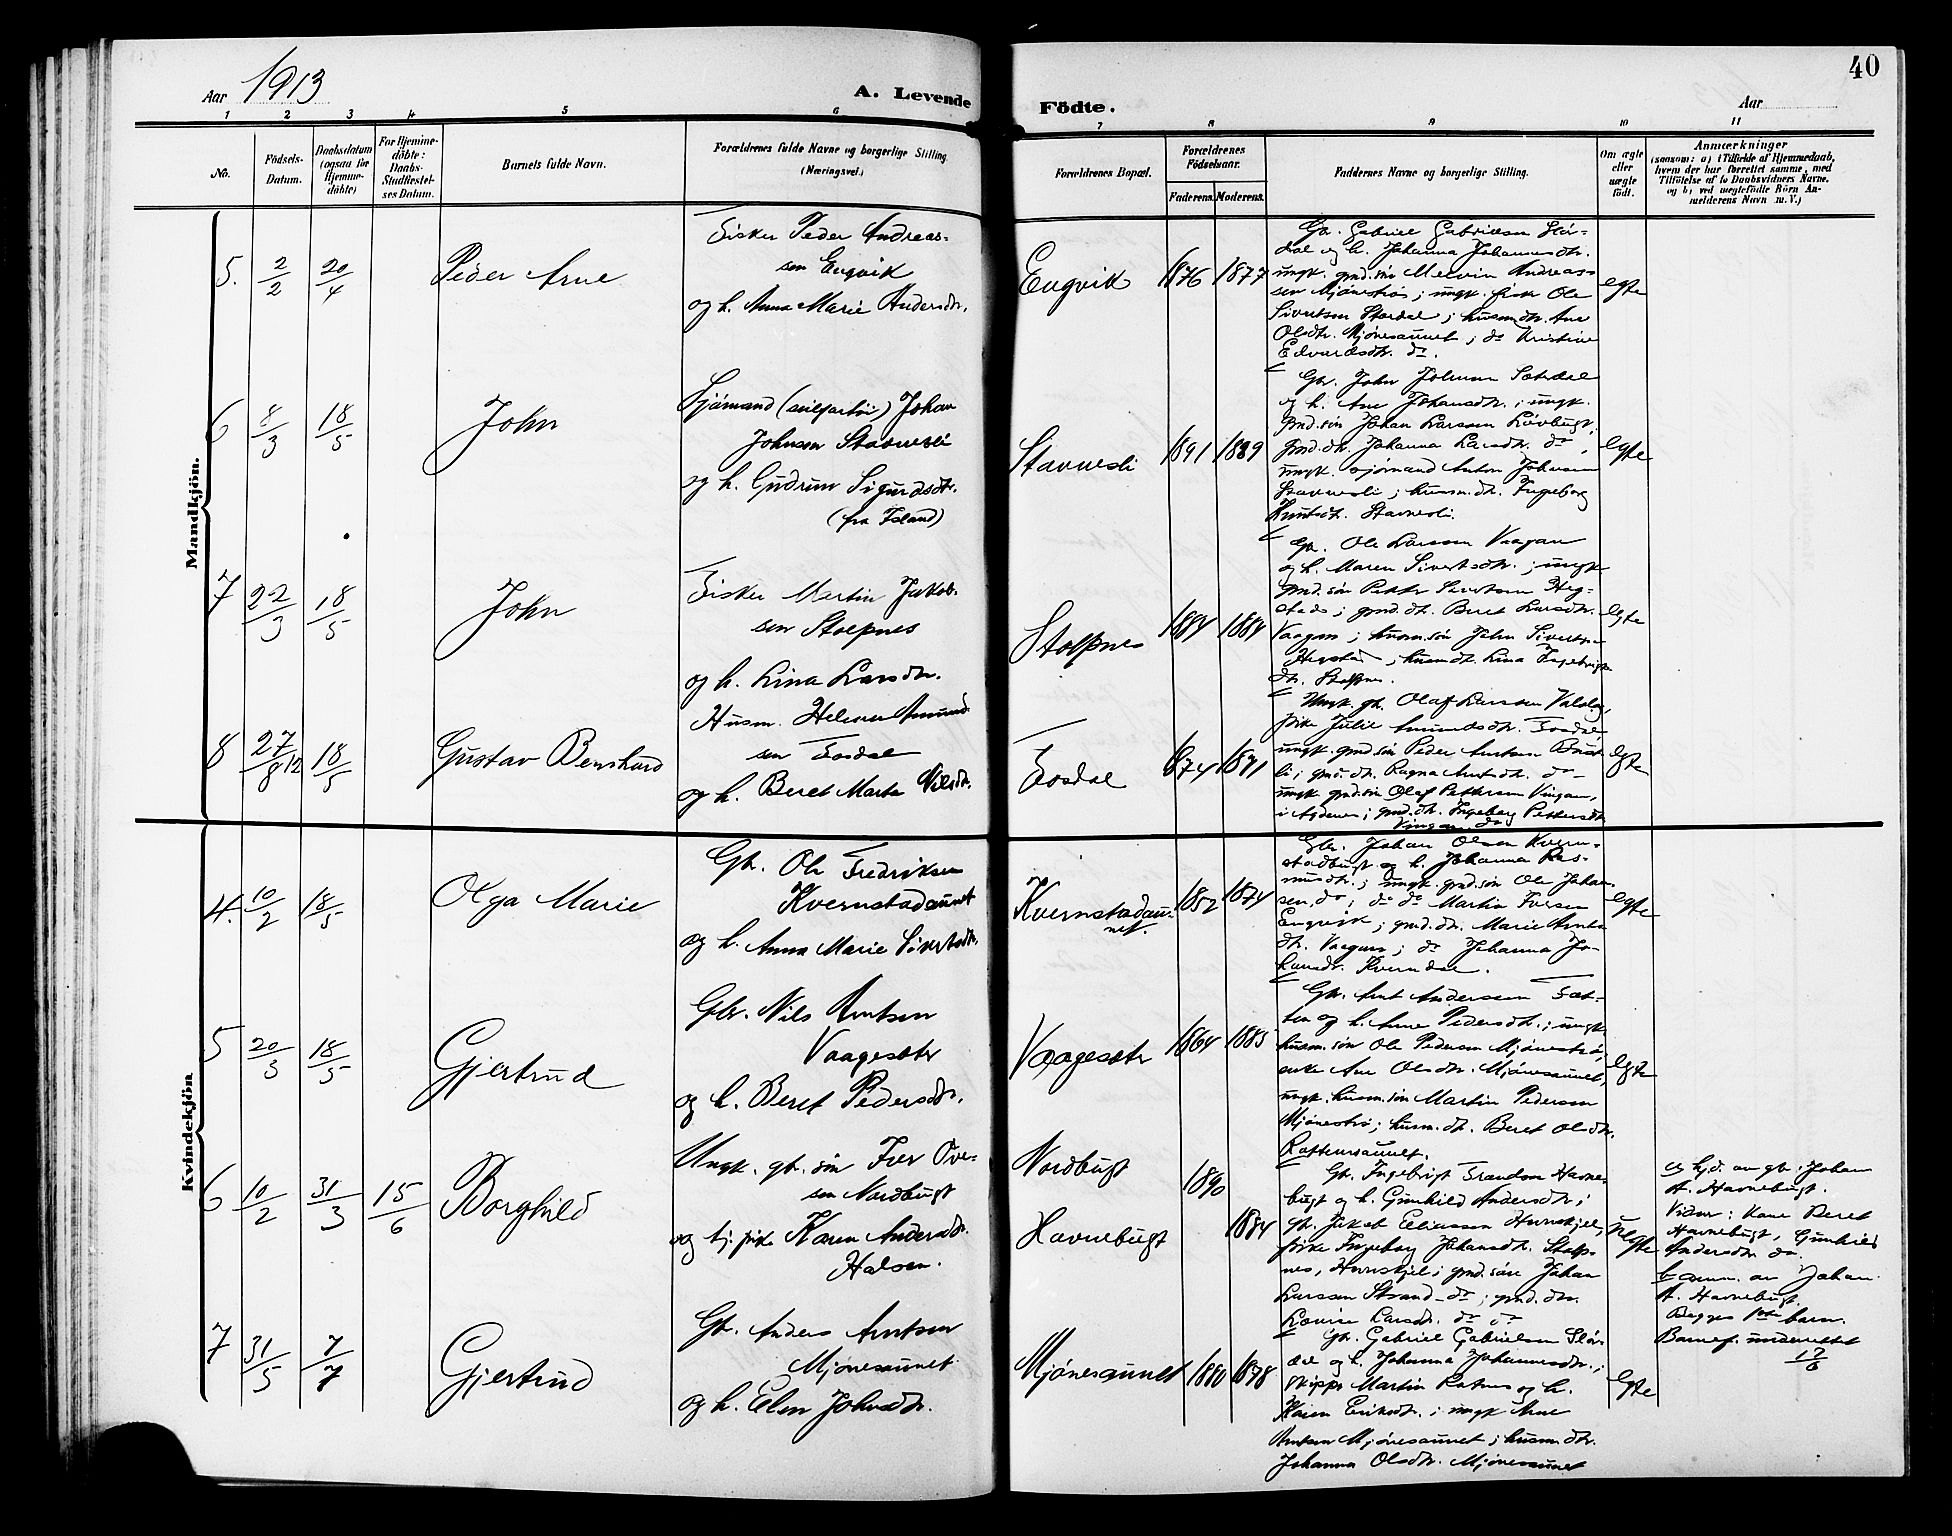 Aar 1913
A. Levende Födte.
40
Aar
1 2 3 4 5 6 7 8 9 10 11
No.
Födsels-Datum.
Daabsdatum (ogsaa för Hjemmedöbte)
For Hjemmedöbte: Daabs-Stadfæstelses Datum.
Barnets fulde Navn.
Forældrenes fulde Navne og borgerlige Stilling.
(Næringsvei.)
Forældrenes Bopæl.
Forældrenes Födselsaar.
Faderens. Moderens.
Faddernes Navne og borgerlige Stilling.
Om ægte eller uægte födt.
Anmærkninger
(saasom: a) i Tilfælde af Hjemmedaab, hvem der har forrettet samme, med Tilföielse af to Daabsvidners Navne, og b) ved uægtefödte Börn Anmelderens Navn m. V.)
Mandkjön.
5. 2/2 20/4 Peder Arne
Fisker Peder Andreas-
sen Engvik
og h. Anna Marie Andersdtr.
Engvik 1876 1877
Gbr. Gabriel Gabrielsen Stör-
dal og h. Johanna Johannesdtr.
ungk. gmd.sön Melvin Andreas-
sen Mjöneströ; ungk. fisk. Ole
Sivertsen Stordal; husm.dtr. Ane
Olsdtr. Mjönesaunet; do Kristine
Edvardsdtr. do.
egte
6 8/3 18/5 John
Sjömand (seilfartöi) Johan
Johnsen Stavnesli
og h. Gudrun Sigurdsdtr.
(fra Island)
Stavnesli 1891 1889
Gbr. John Johnsen Sæterdal
og h. Ane Johansdtr.; ungk.
gmd.sön Johan Larssen Lövbugt;
gmd.dtr. Johanna Larsdtr. do,
ungk. sjömand Anton Johnsen
Stavnesli; husm.dtr. Ingeborg
Knutsdtr. Stavnesli.
egte
7 22/3 18/5 John
Fisker Martin Jakob-
sen Stolpnes
og h. Lina Larsdtr.
Stolpnes 1884 1884
Gbr. Ole Larssen Vaagan
og h. Maren Sivertsdtr.; ungk.
gmd.sön Petter Sivertsen Heg-
stad; gmd.dtr. Beret Larsdtr.
Vaagan; husm.sön John Sivertsen
Hegstad; husm.dtr. Lina Ingebrigts-
dtr. Stolpnes.
egte
8 27/8 12 18/5 Gustav Bernhard
Husm. Helmer Amund-
sen Fosdal
og h. Beret Marta Nilsdtr.
Fosdal 1874 1871
Ungk. gbr. Olaf Larssen Valslag,
pike Julie Amundsdtr. Fosdal,
ungk. gmd.sön Peder Arntsen
li; gmd.dtr. Ragna Arntsdtr. do
ungk. gmd.sön Olaf Pettersen Vingan,
i Agdenes; gmd.dtr. Ingeborg Pettersdtr.
Vingan do
egte
Kvindekjön
4. 10/2 18/5 Olga Marie
Gbr. Ole Fredriksen
Kvernstadaunet
og h. Anna Marie Sivertsdtr.
Kvernstadau-
net. 1852 1874
Gbr. Johan Olsen Kvern-
stadbugt og h. Johanna Ras-
musdtr.; ungk. gmd.sön Ole Johan-
sen, do; do do Martin Iversen
Engvik; gmd.dtr. Marie Arnts-
dtr. Vaagan; do Johanna Jo-
hansdtr. Kverndal.
egte
5 20/3 18/5 Gjertrud
Gbr. Nils Arntsen
Vaagesæter
og h. Beret Pedersdtr.
Vaagesæter 1864 1885
Gbr. Arnt Andersen Sæt-
ten og h. Ane Pedersdtr.; ungk.
husm.sön Ole Pedersen Mjöneströ,
enke Ane Olsdtr. Mjönesaunet,
ungk. husm.sön Martin Pedersen
Mjöneströ; husm.dtr. Beret Olsdtr.
Rottemsaunet.
egte
6 10/2 31/3 15/6 Borghild
Ungk. gbr. sön Iver Ove-
sen Nordbugt
og tj. pike Karen Andersdtr.
Halsen.
Nordbugt 1890
Havnebugt 1884
Gbr. Ingebrigt Havne-
bugt og h. Gunhild Andersdtr.;
gbr. Jakob Eliassen Hernskjel,
pike Ingeborg Johansdtr. Stolp-
nes, Hernskjel; gmd.sön Johan
Larssen Strand do; gmd.dtr.
Lovise Larsdtr. do do
Uegte
a) hj.d. av gbr. Johan
A. Havnebugt.
Vidner: Kone Beret
Havnebugt, Gunhild
Andersdtr. do.
b) anm. av Johan
A. Havnebugt.
Begges 1ste barn.
Barnef. underrettet
17/6
7 31/5 7/7 Gjertrud
Gbr. Anders Arntsen
Mjönesaunet
og h. Elen Johnsdtr.
Mjönesaunet 1880 1878
Gbr. Gabriel Gabrielsen Stör-
dal og h. Johanna Johannesdtr.;
skipper Martin og h.
Karen Eriksdtr.; ungk. Arne
Arntsen Mjönesaunet; husm.dtr.
Johanna Olsdtr. Mjönesaunet
egte